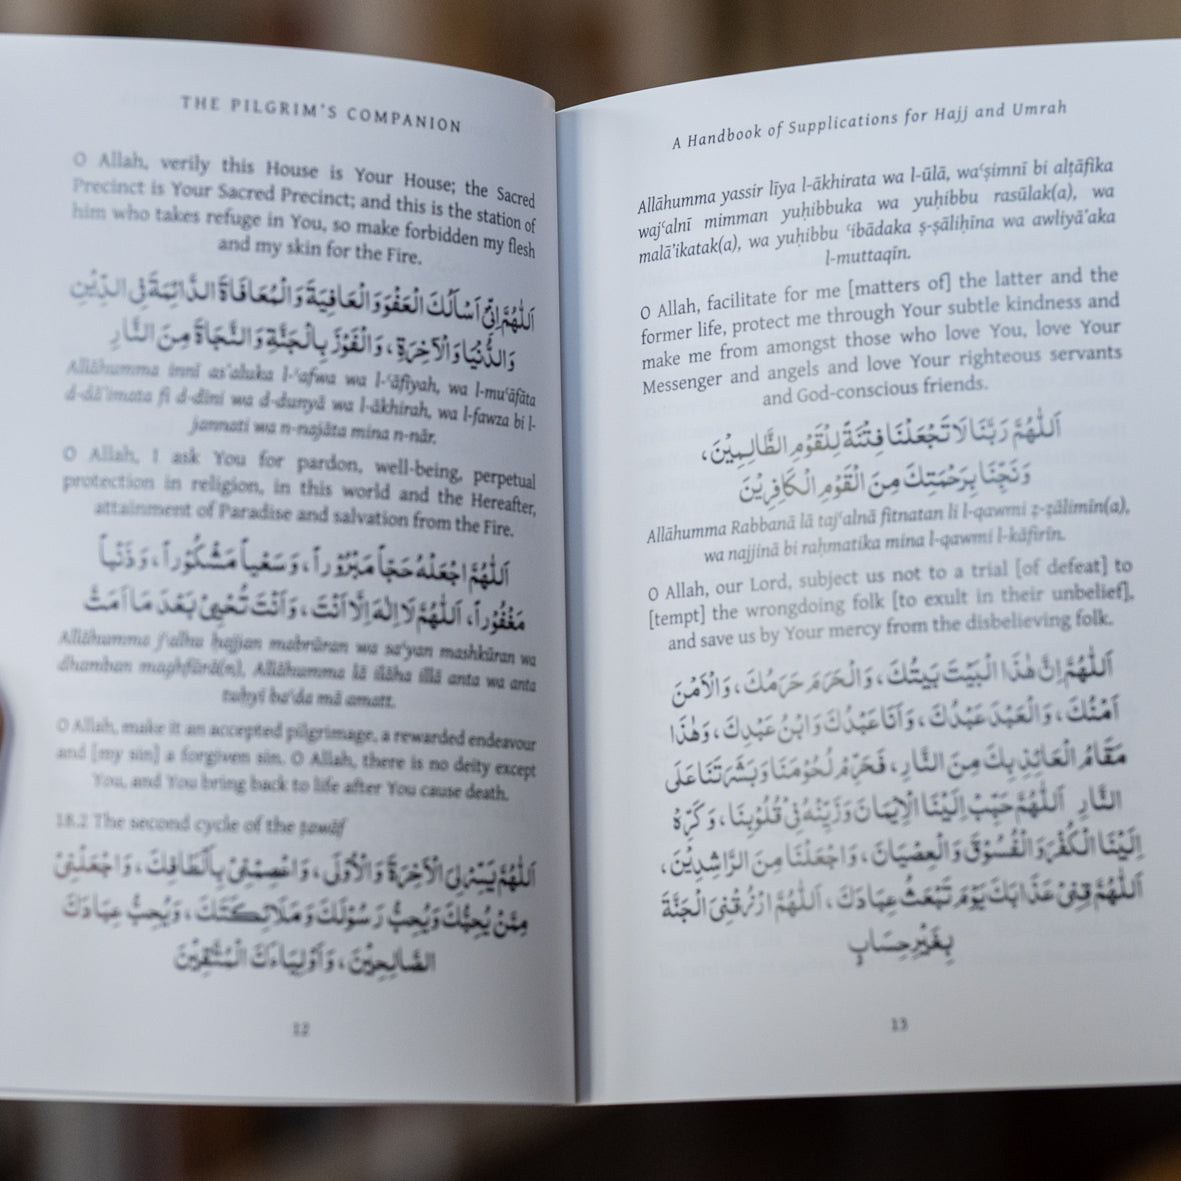 THE PILGRIM'S COMPANION
O Allah, verily this House is Your House; the Sacred
Precinct is Your Sacred Precinct; and this is the station of
him who takes refuge in You, so make forbidden my flesh
and my skin for the Fire.
اَللّٰهُمَّ اِنِّيْ اَسْأَلُكَ الْعَفْوَ وَالْعَافِيَةَ وَالْمُعَافَاةَ الدَّائِمَةَ فِي الدِّيْنِ
وَالدُّنْيَا وَالْاٰخِرَةِ، وَالْفَوْزَ بِالْجَنَّةِ وَالنَّجَاةَ مِنَ النَّارِ
Allāhumma innī as'aluka l-ʿafwa wa l-ʿāfiyah, wa l-muʿāfāta
d-dā'imata fi d-dīni wa d-dunyā wa l-ākhirah, wa l-fawza bi l-
jannati wa n-najāta mina n-nār.
O Allah, I ask You for pardon, well-being, perpetual
protection in religion, in this world and the Hereafter,
attainment of Paradise and salvation from the Fire.
اَللّٰهُمَّ اجْعَلْهُ حَجاًّ مَبْرُوْراً، وَسَعْياً مَشْكُوْراً، وَذَنْباً
مَغْفُوْراً، اَللّٰهُمَّ لَا اِلٰهَ اِلَّا اَنْتَ، وَاَنْتَ تُحْيِيْ بَعْدَ مَا اَمَتَّ
Allāhumma jʿalhu ḥajjan mabrūran wa saʿyan mashkūran wa
dhamban maghfūrā(n), Allāhumma lā ilāha illā anta wa anta
tuḥyī baʿda mā amatt.
O Allah, make it an accepted pilgrimage, a rewarded endeavour
and [my sin] a forgiven sin. O Allah, there is no deity except
You, and You bring back to life after You cause death.
18.2 The second cycle of the ṭawāf
اَللّٰهُمَّ يَسِّرْ لِيَ الْاٰخِرَةَ وَالْاُوْلَى، وَاعْصِمْنِيْ بِأَلْطَافِكَ، وَاجْعَلْنِيْ
مِمَّنْ يُحِبُّكَ وَيُحِبُّ رَسُوْلَكَ وَمَلَائِكَتَكَ، وَيُحِبُّ عِبَادَكَ
الصَّالِحِيْنَ، وَاَوْلِيَاءَكَ الْمُتَّقِيْنَ
12
A Handbook of Supplications for Hajj and Umrah
Allāhumma yassir līya l-ākhirata wa l-ūlā, waʿṣimnī bi alṭāfika
wajʿalnī mimman yuḥibbuka wa yuḥibbu rasūlak(a), wa
malā'ikatak(a), wa yuḥibbu ʿibādaka ṣ-ṣāliḥīna wa awliyā'aka
l-muttaqīn.
O Allah, facilitate for me [matters of] the latter and the
former life, protect me through Your subtle kindness and
make me from amongst those who love You, love Your
Messenger and angels and love Your righteous servants
and God-conscious friends.
اَللّٰهُمَّ رَبَّنَا لَا تَجْعَلْنَا فِتْنَةً لِلْقَوْمِ الظَّالِمِيْنَ،
وَنَجِّنَا بِرَحْمَتِكَ مِنَ الْقَوْمِ الْكَافِرِيْنَ
Allāhumma Rabbanā lā tajʿalnā fitnatan li l-qawmi ẓ-ẓālimīn(a),
wa najjinā bi raḥmatika mina l-qawmi l-kāfirīn.
O Allah, our Lord, subject us not to a trial [of defeat] to
[tempt] the wrongdoing folk [to exult in their unbelief],
and save us by Your mercy from the disbelieving folk.
اَللّٰهُمَّ اِنَّ هٰذَا الْبَيْتَ بَيْتُكَ، وَالْحَرَمَ حَرَمُكَ، وَالْاَمْنَ
اَمْنُكَ، وَالْعَبْدَ عَبْدُكَ، وَاَنَا عَبْدُكَ وَابْنُ عَبْدِكَ، وَهٰذَا
مَقَامُ الْعَائِذِ بِكَ مِنَ النَّارِ، فَحَرِّمْ لُحُوْمَنَا وَبَشَرَتَنَا عَلَى
النَّارِ اَللّٰهُمَّ حَبِّبْ اِلَيْنَا الْاِيْمَانَ وَزَيِّنْهُ فِيْ قُلُوْبِنَا، وَكَرِّهْ
اِلَيْنَا الْكُفْرَ وَالْفُسُوْقَ وَالْعِصْيَانَ، وَاجْعَلْنَا مِنَ الرَّاشِدِيْنَ،
اَللّٰهُمَّ قِنِيْ عَذَابَكَ يَوْمَ تَبْعَثُ عِبَادَكَ، اَللّٰهُمَّ ارْزُقْنِيَ الْجَنَّةَ
بِغَيْرِ حِسَابٍ
13